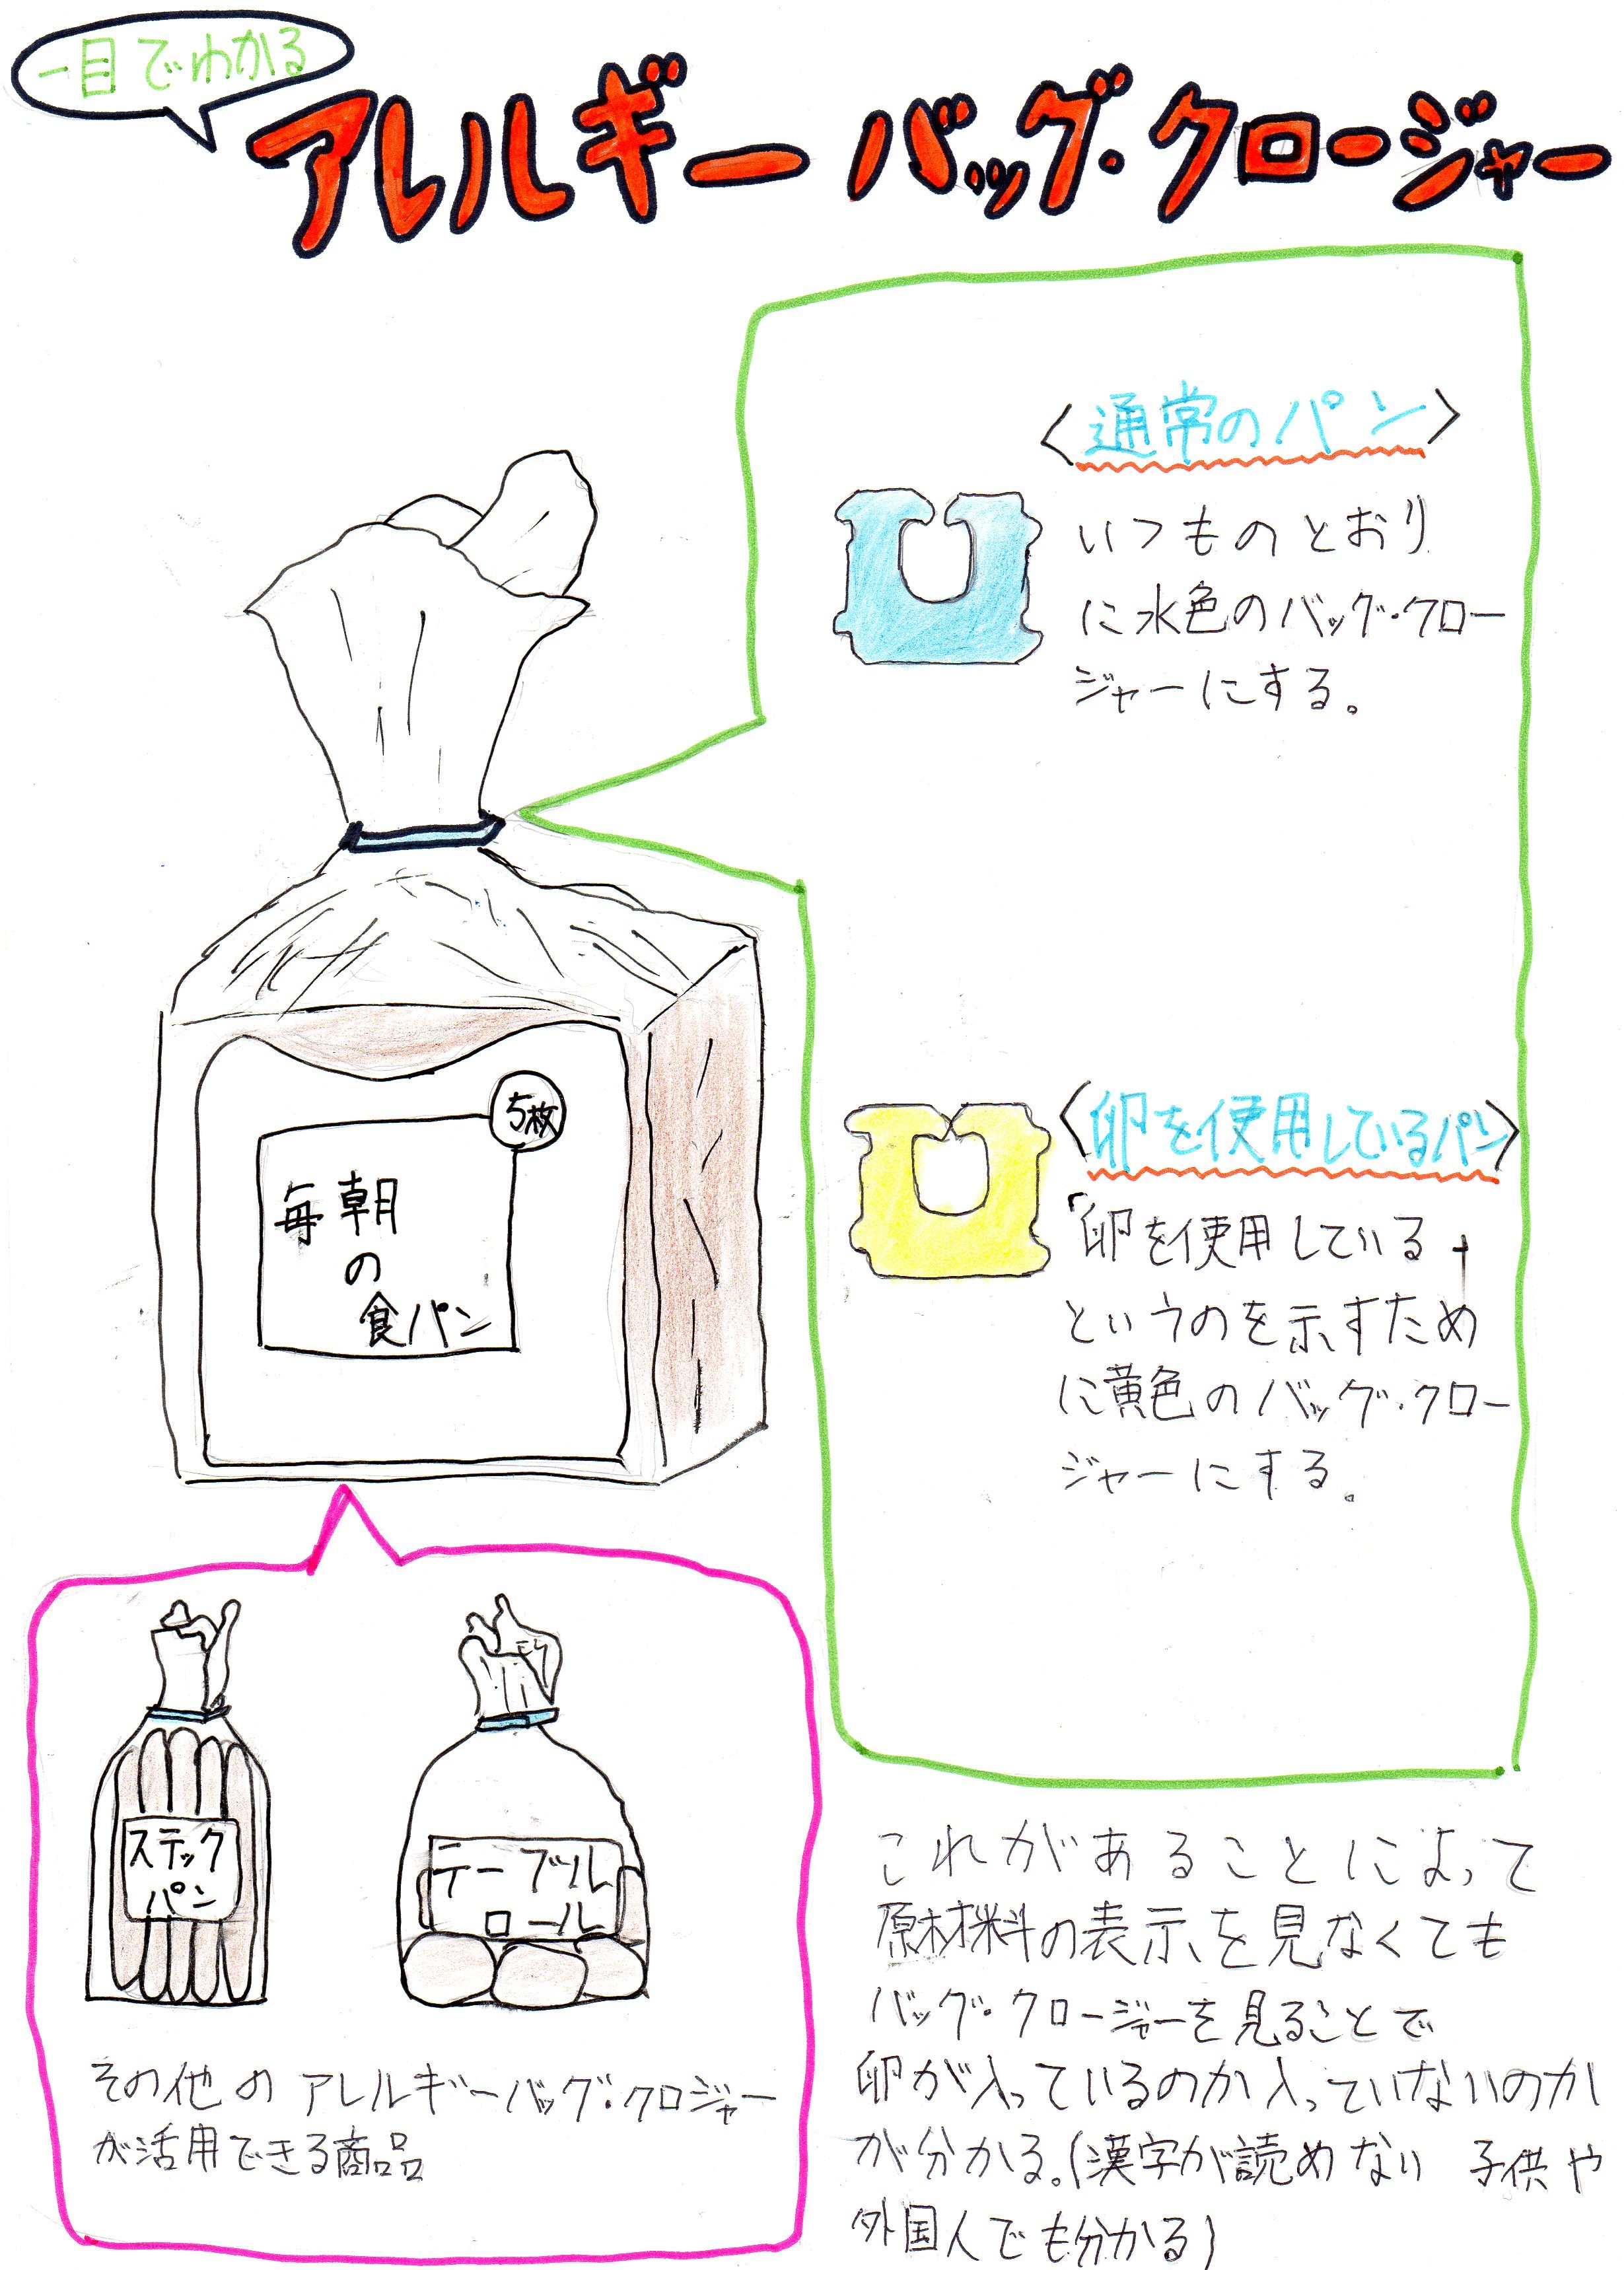 一目でわかる
アレルギーバッグ・クロージャー
〈通常のパン〉
いつものとおり
に水色のバッグ・クロー
ジャーにする。
〈卵を使用しているパン〉
「卵を使用している」
というのを示すため
に黄色のバッグ・クロー
ジャーにする。
5枚
毎朝
の
食パン
スティック
パン
テーブル
ロール
その他のアレルギーバッグ・クロジャー
が活用できる商品
これがあることによって
原材料の表示を見なくても
バッグ・クロージャーを見ることで
卵が入っているのか入っていないのか
が分かる。(漢字が読めない 子供や
外国人でも分かる)